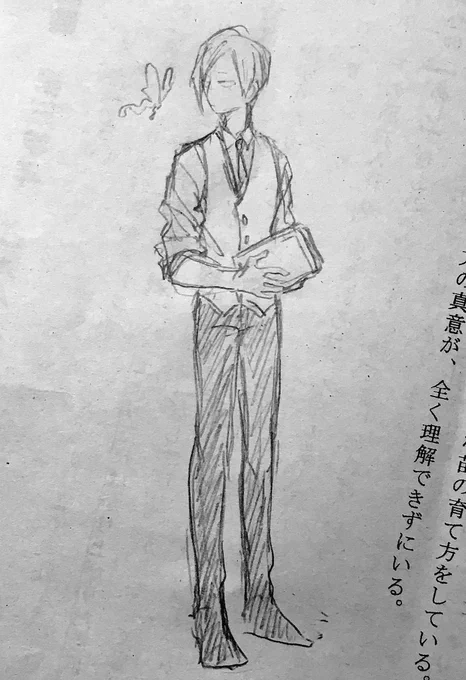 苗の育て方をしている。
の真意が、全く理解できずにいる。